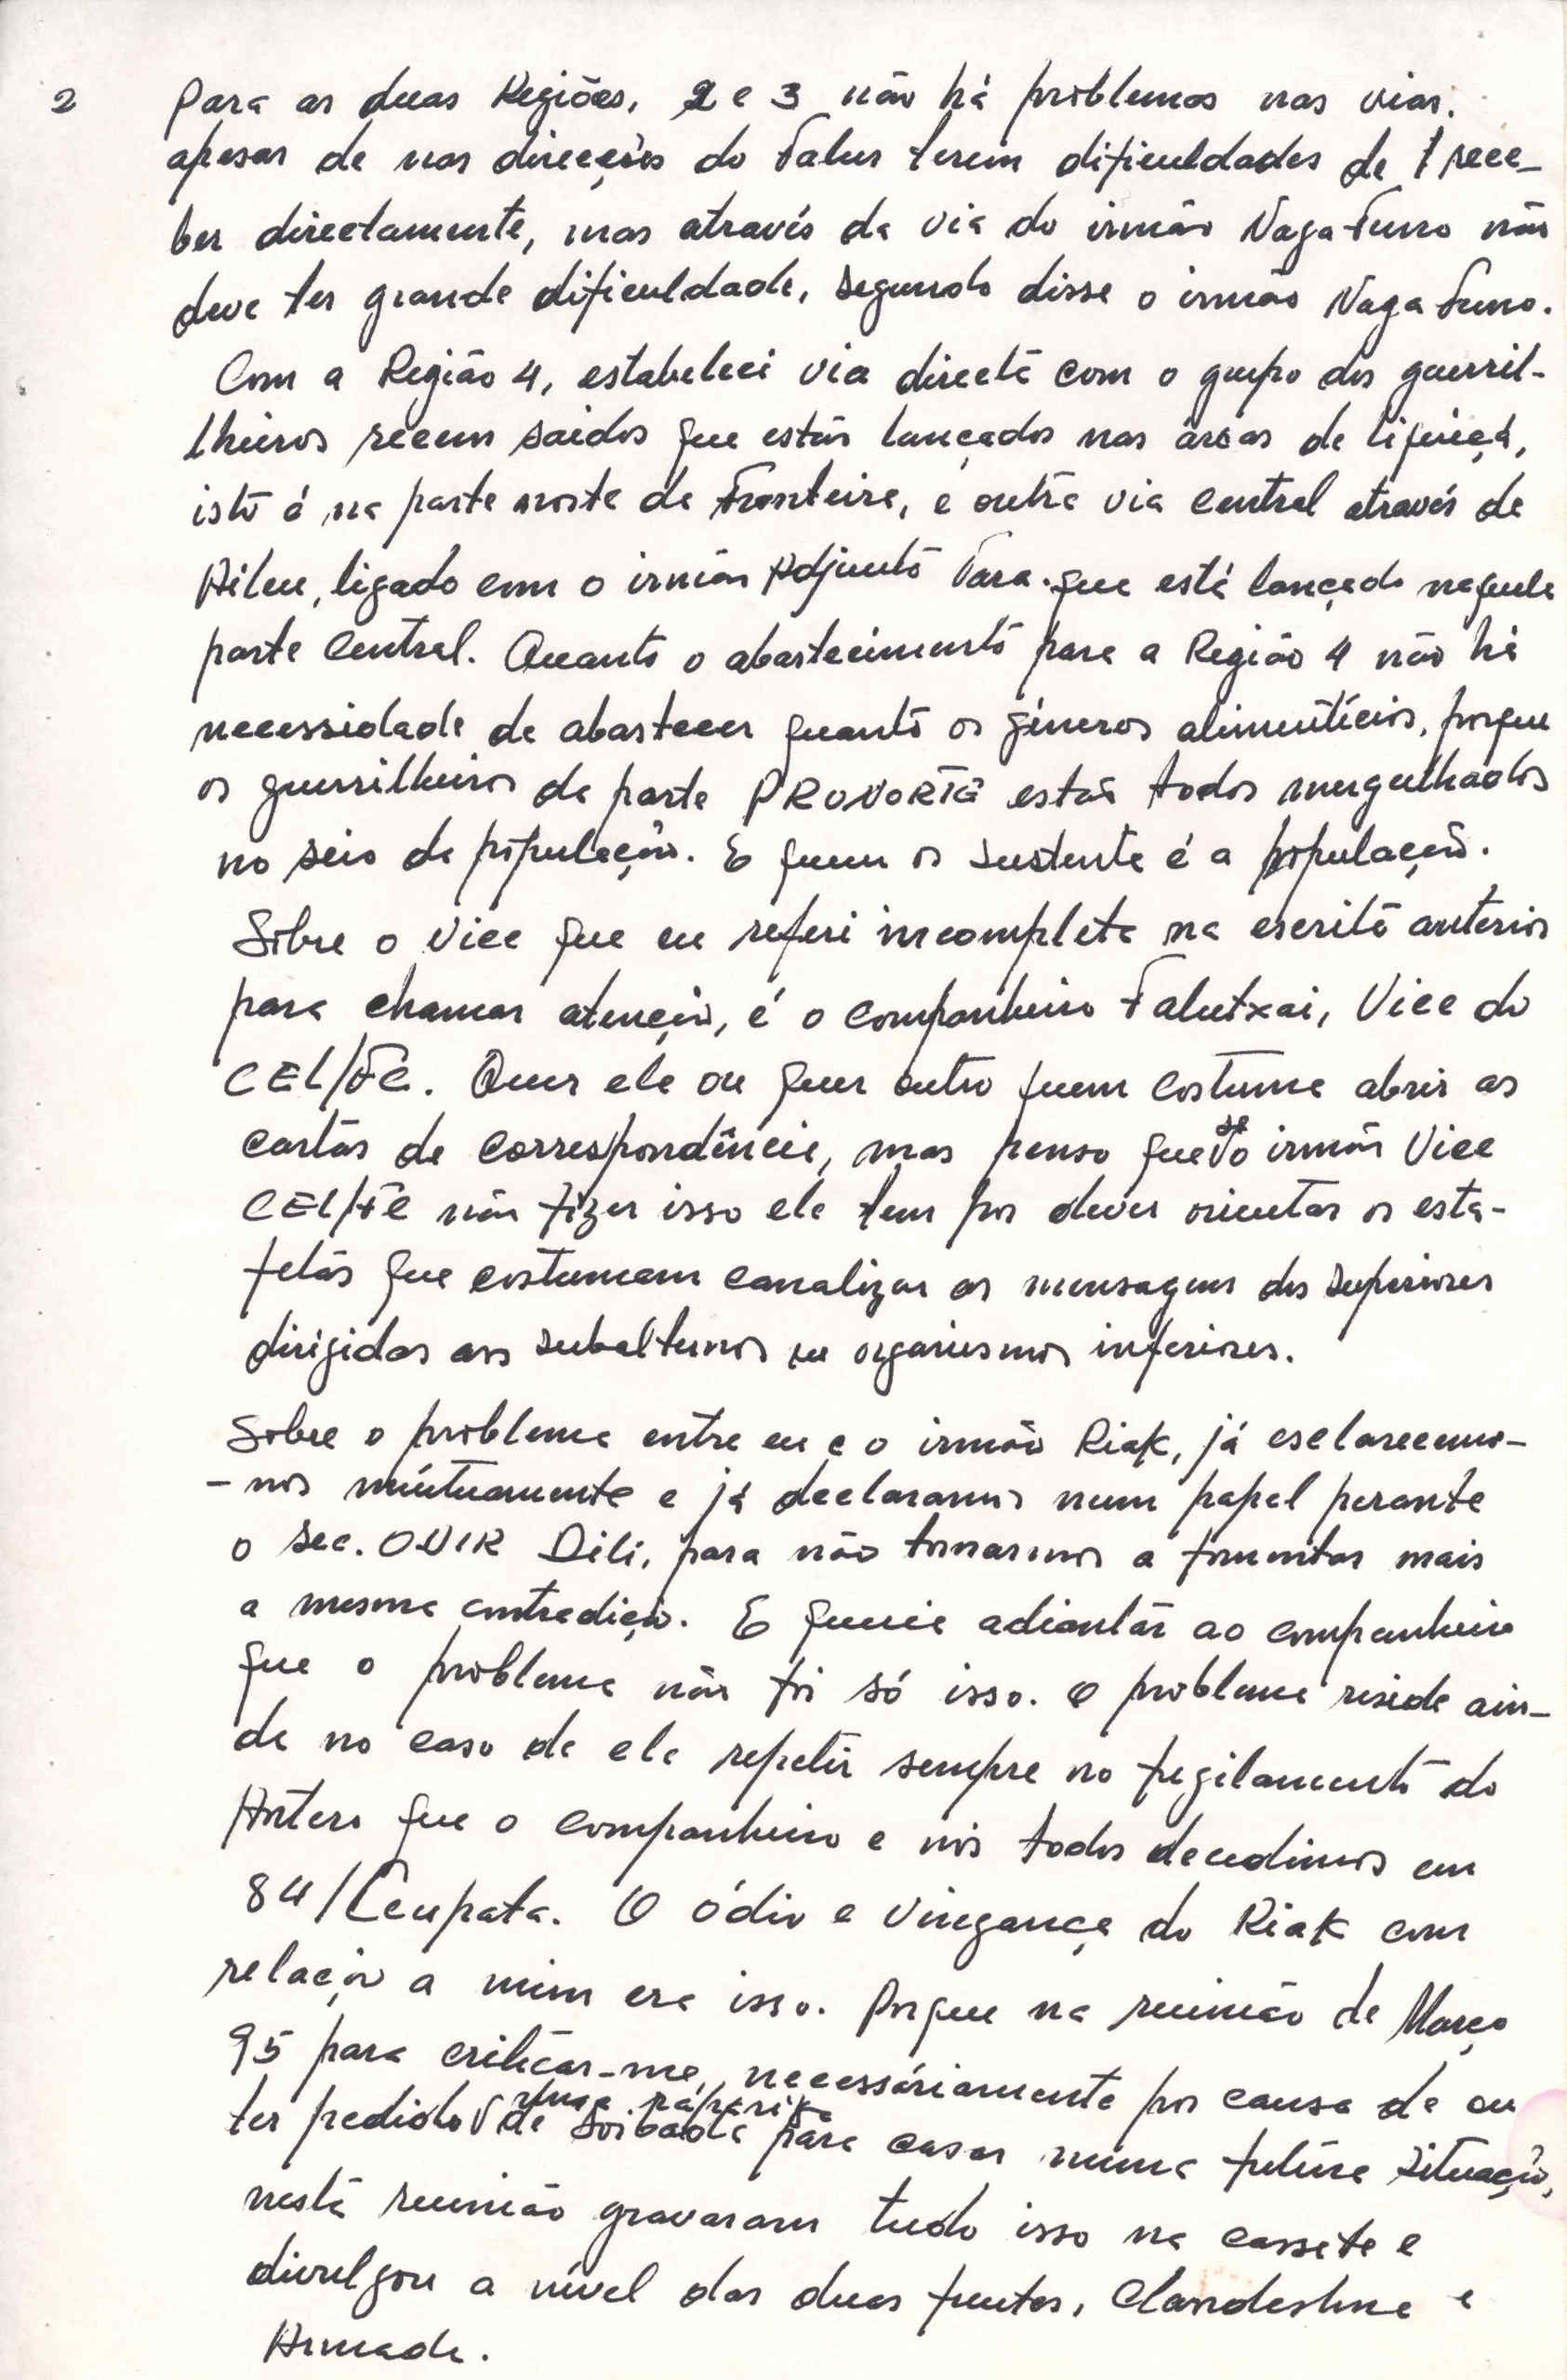 2
Para as duas Regiões, 2 e 3 não há problemas nas vias.
apesar de nas direcções do Falur terem dificuldades de rece-
ber directamente, mas através da via do irmão Naga Funo não
deve ter grande dificuldade, segundo disse o irmão Naga Funo.
Com a Região 4, estabeleci via directa com o grupo dos guerril-
lheiros recem saidos que estão lançados nas áreas de Liquiçá,
isto é na parte norte da Fronteira, e outra via central através de
Aileu, ligado com o irmão Adjunto Tara. que está lançado naquela
parte Central. Quanto o abastecimento para a Região 4 não há
necessidade de abastecer quanto os géneros alimentícios, porque
os guerrilheiros da parte estão todos mergulhados
no seio da população. E quem os sustenta é a população.
Sobre o Vice que eu referi incompleta na escrita anterior
para chamar atenção, é o companheiro Falutxai, Vice do
CEL/FC. Quer ele ou quer outro quem costuma abrir as
cartas de correspondência, mas penso que se o irmão Vice
CEL/FC não fizer isso ele tem por dever orientar os esta-
fetas que costumam canalizar as mensagens dos superiores
dirigidas aos subalternos ou organismos inferiores.
Sobre o problema entre eu e o irmão Riak, já esclarecemo-
-nos mútuamente e já declaramos num papel perante
o Sec. ODIR Dili, para não tornarmos a fomentar mais
a mesma contradição. E queria adiantar ao companheiro
que o problema não foi só isso. O problema reside ain-
da no caso de ele repetir sempre no fuzilamento do
Antero que o companheiro e nós todos decedimos em
84/ O ódio e vingança do Riak com
relação a mim era isso. Porque na reunião de Março
95 para criticar-me, necessáriamente por causa de eu
ter pedido uma rapariga de Soibada para casar numa futura situação,
nesta reunião gravaram tudo isso na cassete e
divulgou a nível das duas frentes, Clandestina e
Armada.